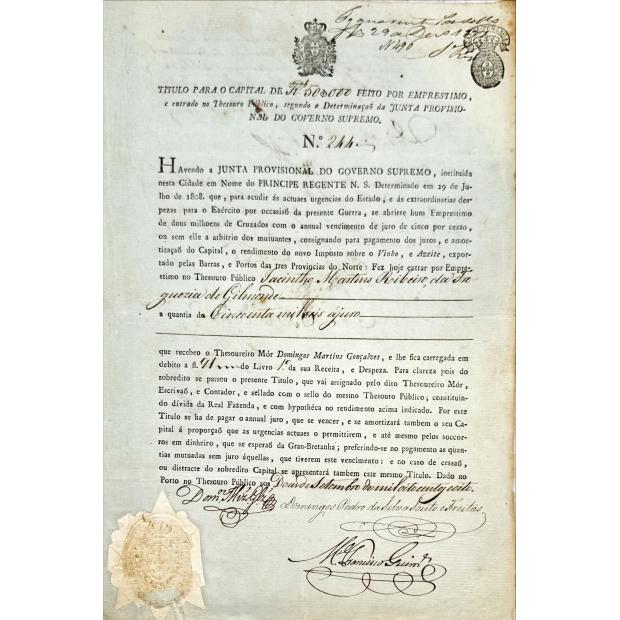 Nº 496
TITULO PARA O CAPITAL DE Rs 50$000 FEITO POR EMPRESTIMO,
e entrado no Thesouro Público, segundo a Determinaçaõ da JUNTA PROVISIO-
NAL DO GOVERNO SUPREMO.
N.º 244
HAvendo a JUNTA PROVISIONAL DO GOVERNO SUPREMO, instituida
nesta Cidade em Nome do PRINCIPE REGENTE N. S. Determinado em 29 de Ju-
lho de 1808. que, para acudir ás actuaes urgencias do Estado, e ás extraordinarias des-
pezas para o Exército por occasiaõ da presente Guerra, se abrisse hum Emprestimo
de dous milhoens de Cruzados com o annual vencimento de juro de cinco por cento,
ou sem elle a arbitrio dos mutuantes, consignando para pagamento dos juros, e amor-
tizaçaõ do Capital, o rendimento do novo Imposto sobre o Vinho, e Azeite, expor-
tado pelas Barras, e Portos das tres Provincias do Norte: Fez hoje entrar por Empre-
stimo no Thesouro Público Jacintho Martins Ribeiro, da Fre
guezia de Gilmonde
a quantia de Cincoenta mil reis á juro
que recebeo o Thesoureiro Mór Domingos Martins Gonçalves, e lhe fica carregada em
debito a fl. 91 do Livro 1.º da sua Receita, e Despeza. Para clareza pois do
sobredito se passou o presente Titulo, que vai assignado pelo dito Thesoureiro Mór,
Escrivaõ, e Contador, e sellado com o sello do mesmo Thesouro Público; constituin-
do dívida da Real Fazenda, e com hypothéca no rendimento acima indicado. Por este
Titulo se ha de pagar o annual juro, que se vencer, e se amortizará tambem o seu Ca-
pital á proporçaõ que as urgencias actuaes o permittirem, e até mesmo pelos soccor-
ros em dinheiro, que se esperaõ da Gran-Bretanha; preferindo-se no pagamento as quan-
tias mutuadas sem juro áquellas, que tiverem este vencimento: e no caso de cessaõ,
ou distracte do sobredito Capital se apresentará tambem este mesmo Titulo. Dado no
Porto no Thesouro Público aos Dous de Setembro de mil oito centos e oito
Domingos Pedro da Silva Souto e Freitas